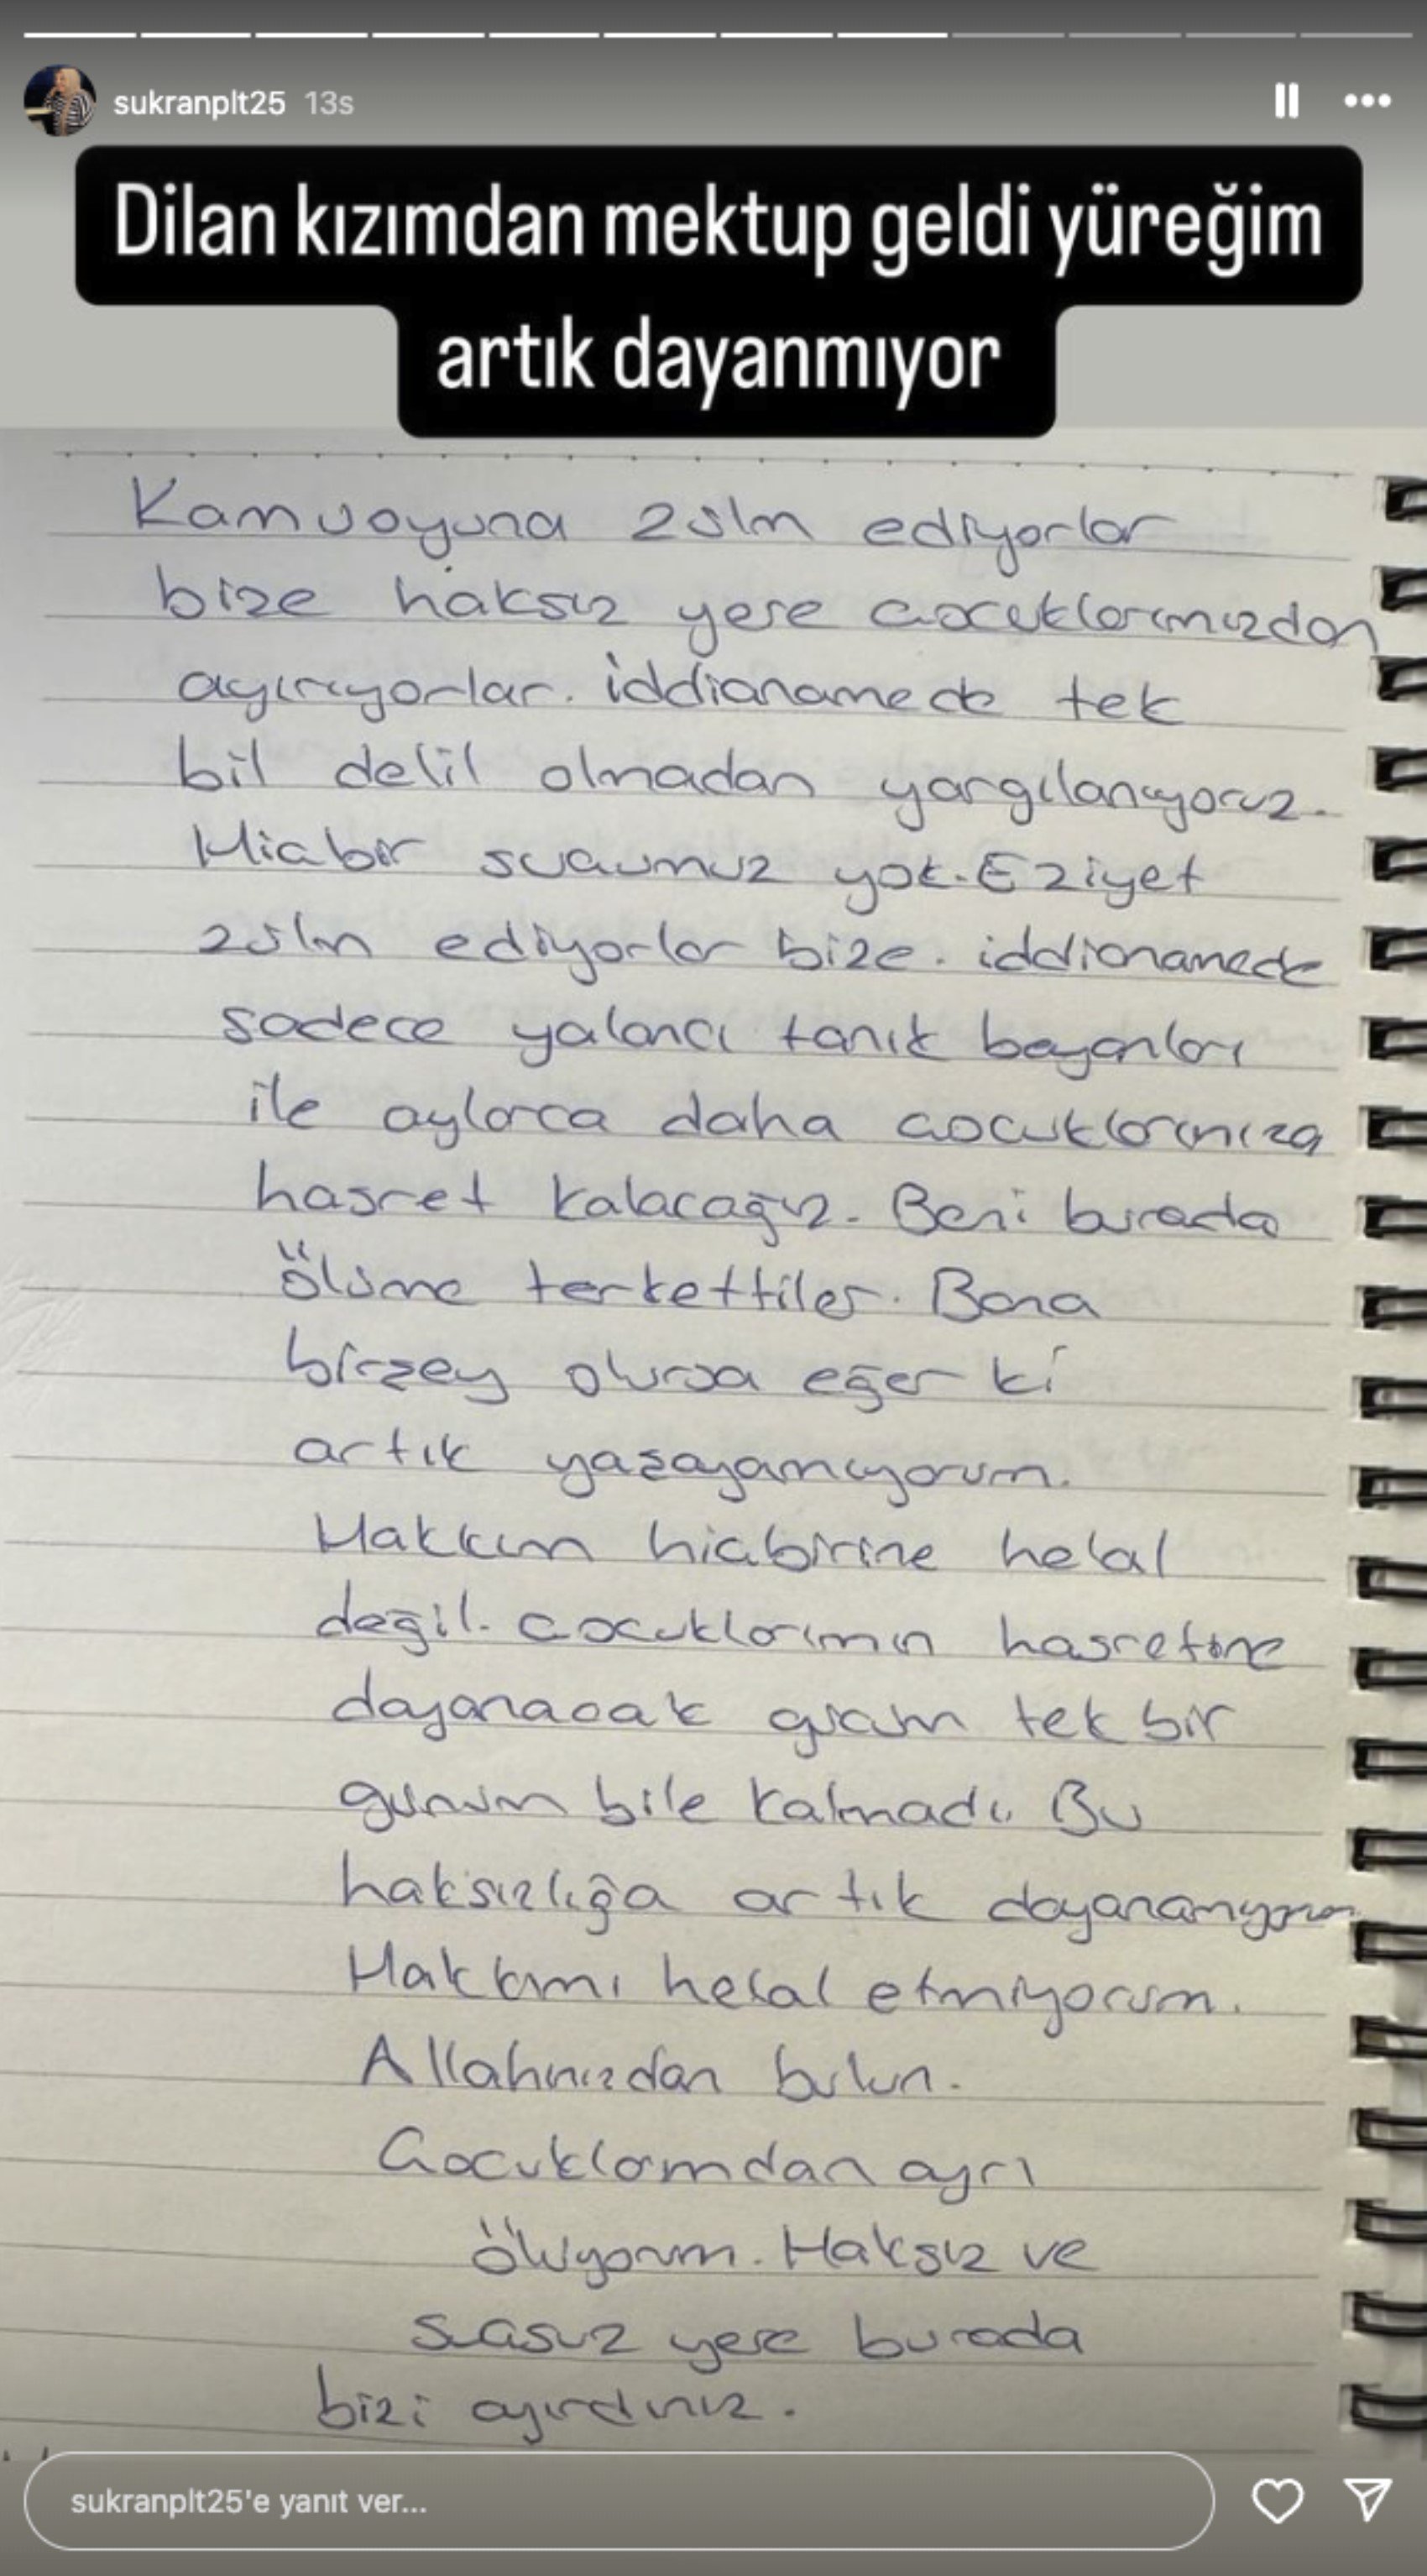 sukranplt25 13s
Dilan kızımdan mektup geldi yüreğim
artık dayanmıyor
Kamuoyuna zülm ediyorlar
bize haksız yere çocuklarımızdan
ayırıyorlar. iddianamede tek
bil delil olmadan yargılanıyoruz.
Hiçbir suçumuz yok. Eziyet
zülm ediyorlar bize. iddianamede
sadece yalancı tanık beyanları
ile aylarca daha çocuklarımıza
hasret kalacağız. Beni burada
ölüme terkettiler. Bana
birşey olursa eğer ki
artık yaşayamıyorum.
Hakkım hiçbirine helal
değil. Çocuklarımın hasretine
dayanacak gücüm tek bir
günüm bile kalmadı. Bu
haksızlığa artık dayanamıyorum
Hakkımı helal etmiyorum.
Allahınızdan bulun.
Çocuklarımdan ayrı
ölüyorum. Haksız ve
suçsuz yere burada
bizi ayırdınız.
sukranplt25'e yanıt ver...